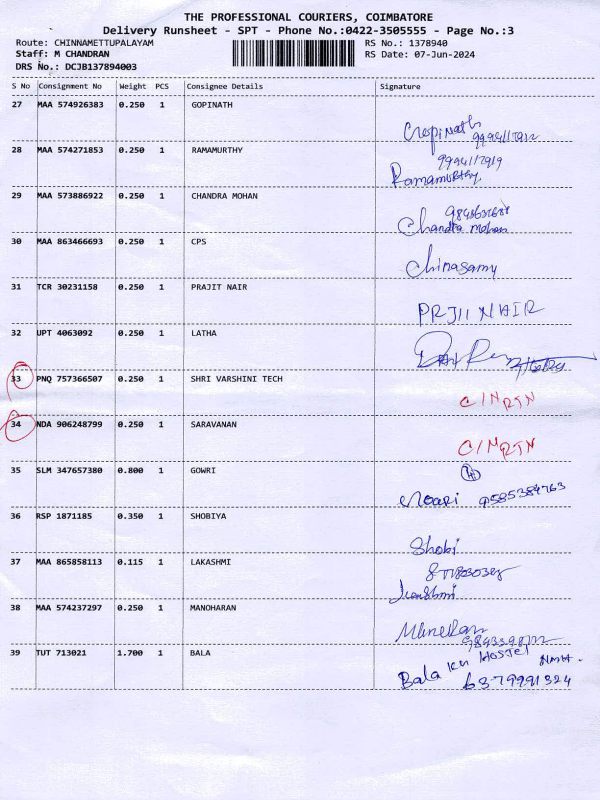 THE PROFESSIONAL COURIERS, COIMBATORE
Delivery Runsheet - SPT - Phone No.:0422-3505555 - Page No.:3
Route: CHINNAMETTUPALAYAM RS No.: 1378940
Staff: M CHANDRAN RS Date: 07-Jun-2024
DRS No.: DCJB137894003
S No Consignment No Weight PCS Consignee Details Signature
27 MAA 574926383 0.250 1 GOPINATH
Gopinath
28 MAA 574271853 0.250 1 RAMAMURTHY
9994117919
Ramamurthy
29 MAA 573886922 0.250 1 CHANDRA MOHAN
Chandra mohan
30 MAA 863466693 0.250 1 CPS
Chinasamy
31 TCR 30231158 0.250 1 PRAJIT NAIR
PRJII NAIR
32 UPT 4063092 0.250 1 LATHA
33 PNQ 757366507 0.250 1 SHRI VARSHINI TECH
C/N RTN
34 NDA 906248799 0.250 1 SARAVANAN
C/N RTN
35 SLM 347657380 0.800 1 GOWRI
9585384763
36 RSP 1871185 0.350 1 SHOBIYA
Shobi
37 MAA 865858113 0.115 1 LAKASHMI
38 MAA 574237297 0.250 1 MANOHARAN
39 TUT 713021 1.700 1 BALA
Bala KN Hostel
6379991324